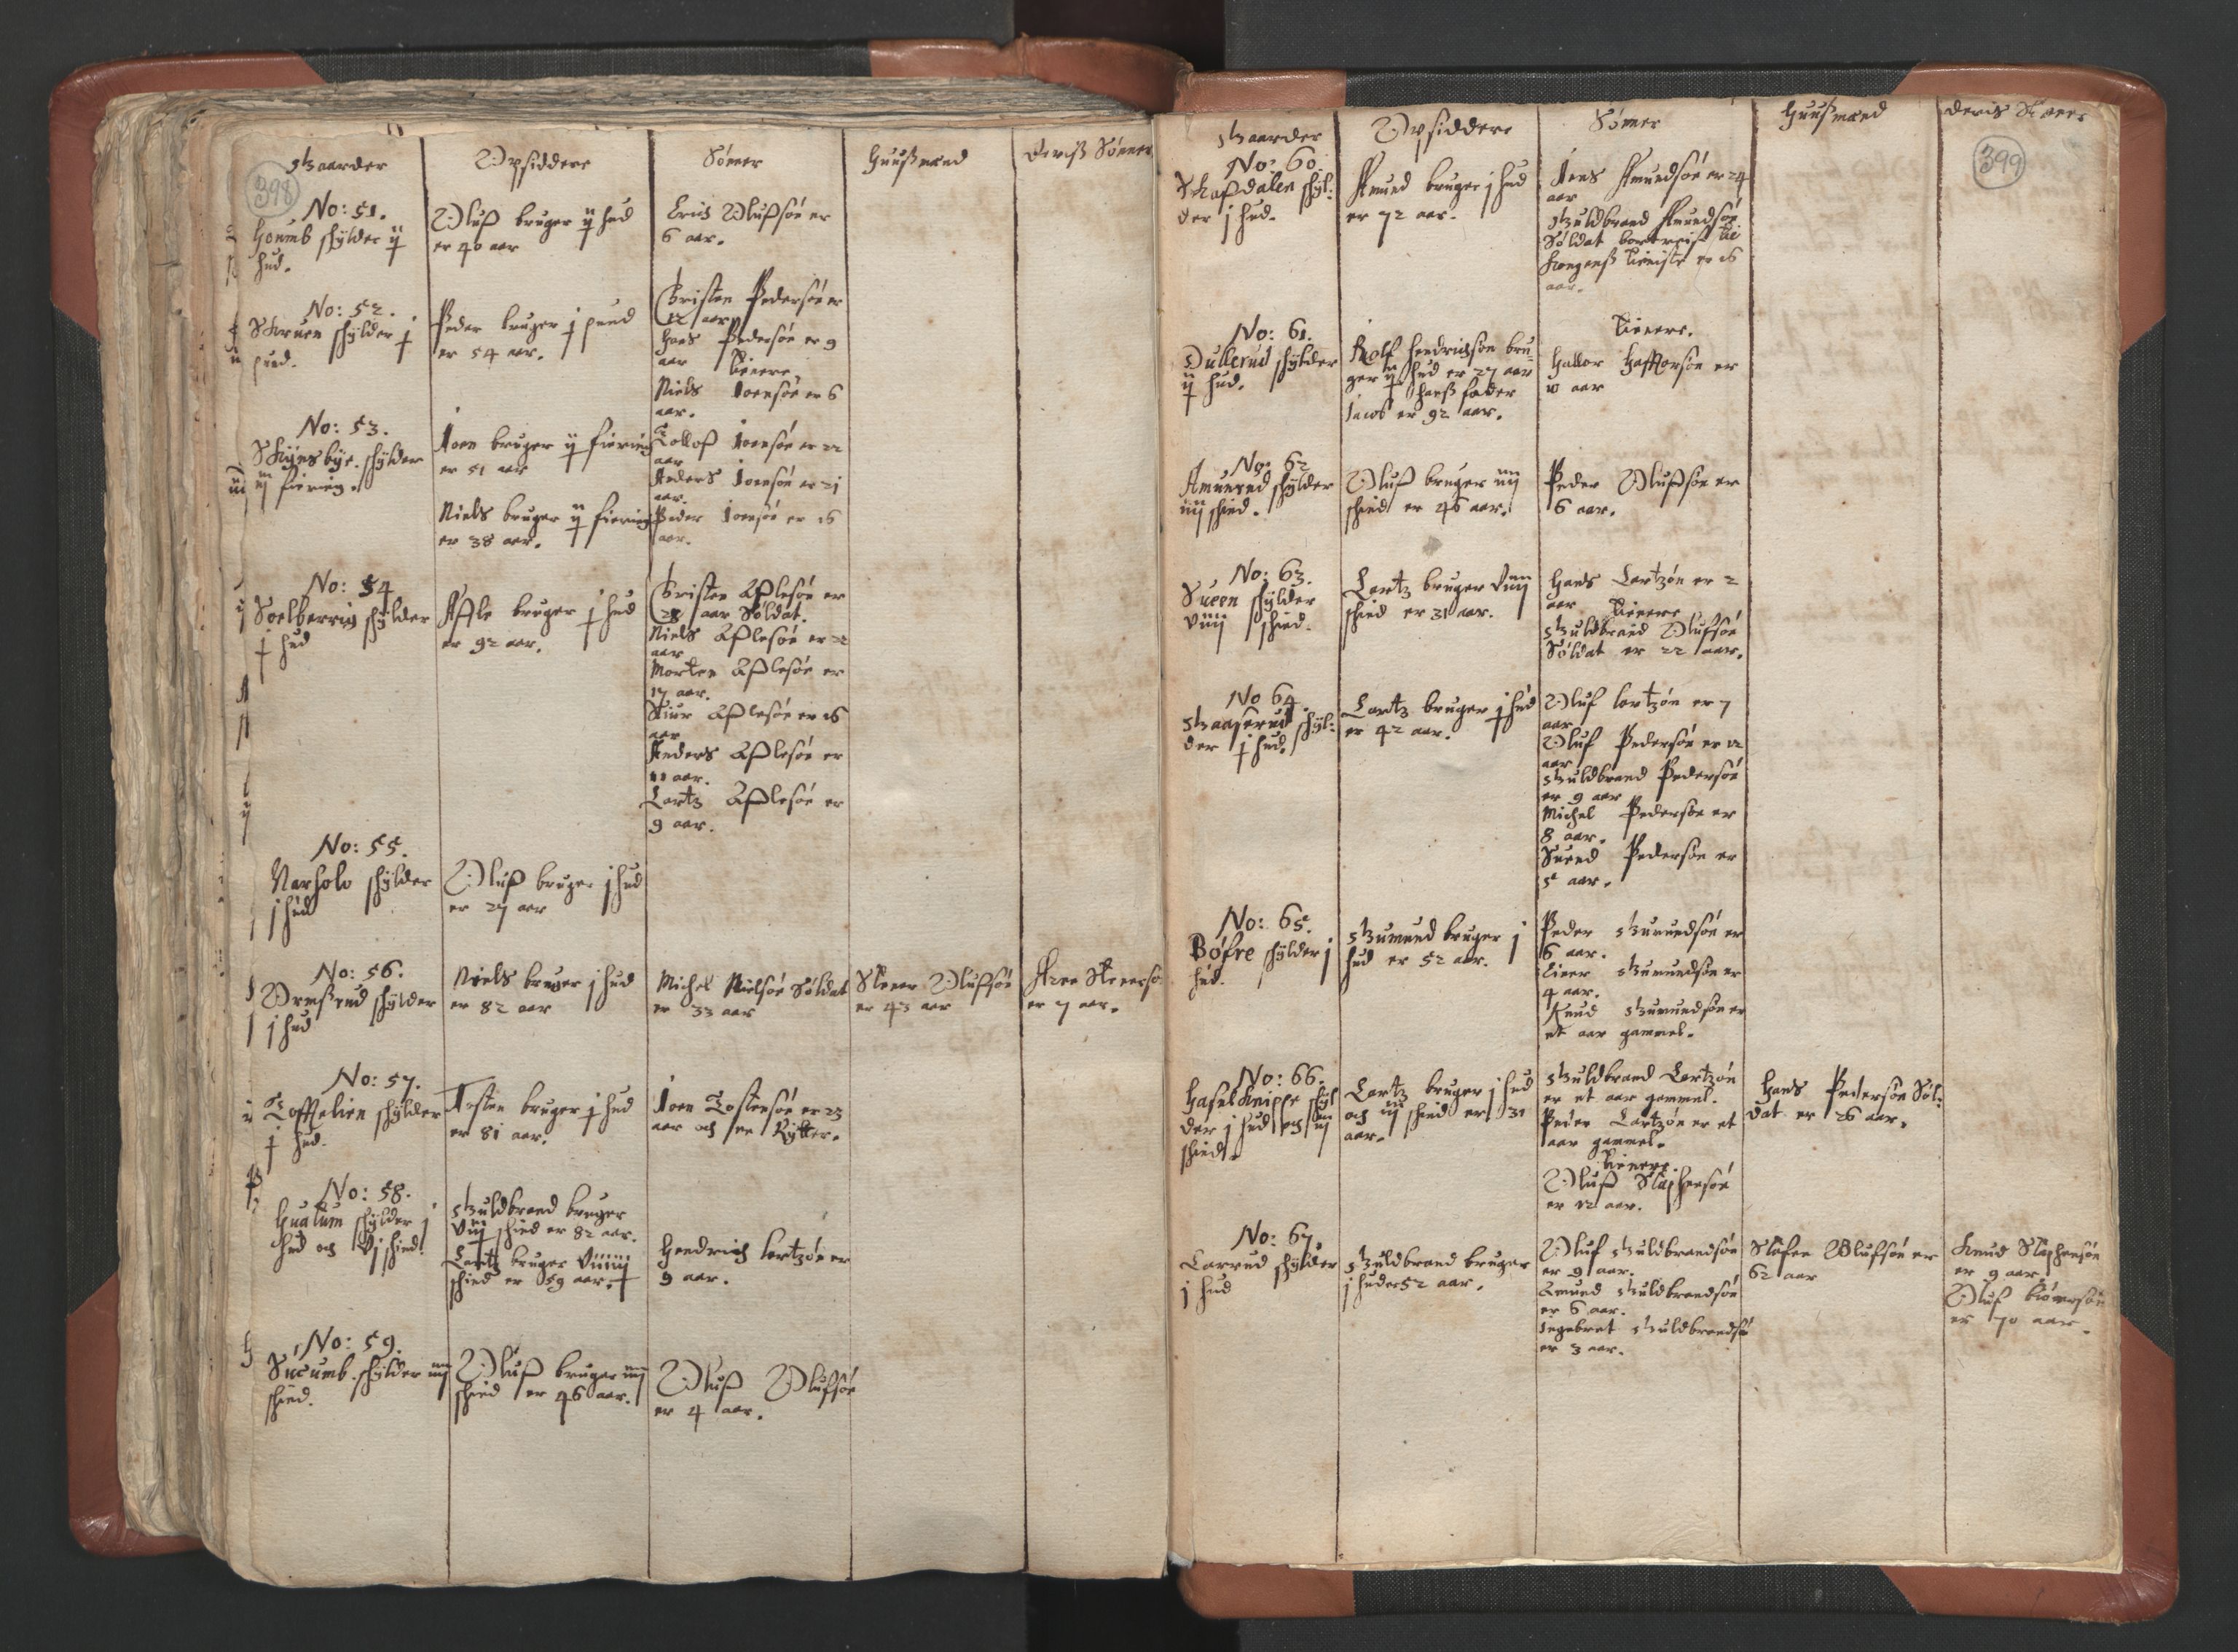 398
Gaarder Opsiddere Sønner Huußmænd Deriß Sønner
No: 51.
Houmb schylder ij
hud.
Oluff bruger ij hud
er 40 aar
Erich Oluffsøn er
6 aar.
No: 52.
Schruen schylder j
pund.
Peder bruger j pund
er 54 aar.
Christen Pedersøn er
12 aar
Hans Pedersøn er 9
aar
tienere.
Niels Joensøn er 6
aar.
No: 53.
schylder
fiering.
Joen bruger ij fiering
er 51 aar
Niels bruger ij fiering
er 38 aar.
Tolloff Joensøn er 22
aar
Anders Joensøn er 21
aar.
Peder Joensøn er 16
aar.
No: 54
Soelberrig schylder
j hud
Affle bruger j hud
er 92 aar.
Christen Afflesøn er
28 aar Soldat.
Niels Afflesøn er 22
aar
Morten Afflesøn er
17 aar.
Stiur Afflesøn er 16
aar
Anders Afflesøn er
11 aar.
Lartz Afflesøn er
9 aar.
No: 55.
Narholo schylder
j hud
Oluff bruger j hud
er 27 aar
No: 56.
Ormßrud schylder
j hud
Niels bruger j hud
er 82 aar
Michel Nielsøn Søldat
er 33 aar
Stener Oluffsøn
er 43 aar
Arne Stenersø
er 7 aar.
No: 57.
Toffelien schylder
j hud.
Tosten bruger j hud
er 81 aar.
Joen Tostensøn er 23
aar och en Rytter.
No: 58.
Hualum schylder j
hud och vj schind.
Guldbrand bruger
viij schind er 82 aar.
Lartz bruger
schind er 59 aar.
Hendrich Lartzøn er
9 aar.
No: 59.
Sucumb schylder iiij
schind.
Oluff bruger iiij
schind er 46 aar.
Oluff Oluffsøn
er 4 aar.
399
Gaarder Opsiddere Sønner Huußmænd Deris Sønner
No: 60
Schaffdalen schyl:
der j hud.
Amund bruger j hud
er 72 aar.
Jens Amundsøn er 24
aar
Guldbrand Amundsøn
Søldat bortreist
Kongenß tieniste er 26
aar.
No: 61.
Dullerud schylder
ij hud.
Rolf Hendrichsøn bru-
ger ij hud er 27 aar
hanß fader
Jacob er 92 aar.
tienere.
Hallor Hafforsøn er
10 aar
No: 62
Amunrud schylder
iiij schind.
Oluff bruger iiij
schind er 46 aar.
Peder Oluffsøn er
6 aar.
No: 63.
Sueen schylder
viiij schind.
Lartz bruger viiij
schind er 31 aar.
Hans Lartzøn er 2
aar
tienere
Guldbrand Olufsøn
Søldat er 22 aar.
No 64.
Gaaserud schyl:
der j hud.
Lartz bruger j hud
er 42 aar.
Oluf Lartzøn er 7
aar
Oluf Pedersøn er 12
aar
Guldbrand Pedersøn
er 9 aar
Michel Pedersøn er
8 aar.
Suend Pedersøn er
5 aar.
No: 65.
Bøfre schylder j
hud.
Gumund bruger j
hud er 52 aar.
Peder Gumundsøn er
6 aar.
Einer Gumundsøn er
4 aar.
Knud Gumundsøn er
et aar gammel.
No: 66.
Haselkneppe schyl
der j hud och iij
schind.
Lartz bruger j hud
och iij schind er 31
aar.
Guldbrand Lartzøn
er et aar gammel.
Peder Lartzøn er et
aar gammel.
tienere.
Oluff Staphensøn
er 12 aar.
Hans Pedersøn Søl:
dat er 26 aar.
No: 67.
Larrud schylder
j hud
Guldbrand bruger
j hud er 52 aar.
Oluf Guldbrandsøn
er 9 aar.
Amund Guldbrandsøn
er 6 aar.
Ingebret Guldbrandsø
er 3 aar.
Stafen Olufsøn er
62 aar
Knud Staphensøn
er 9 aar.
Oluf
er 70 aar.